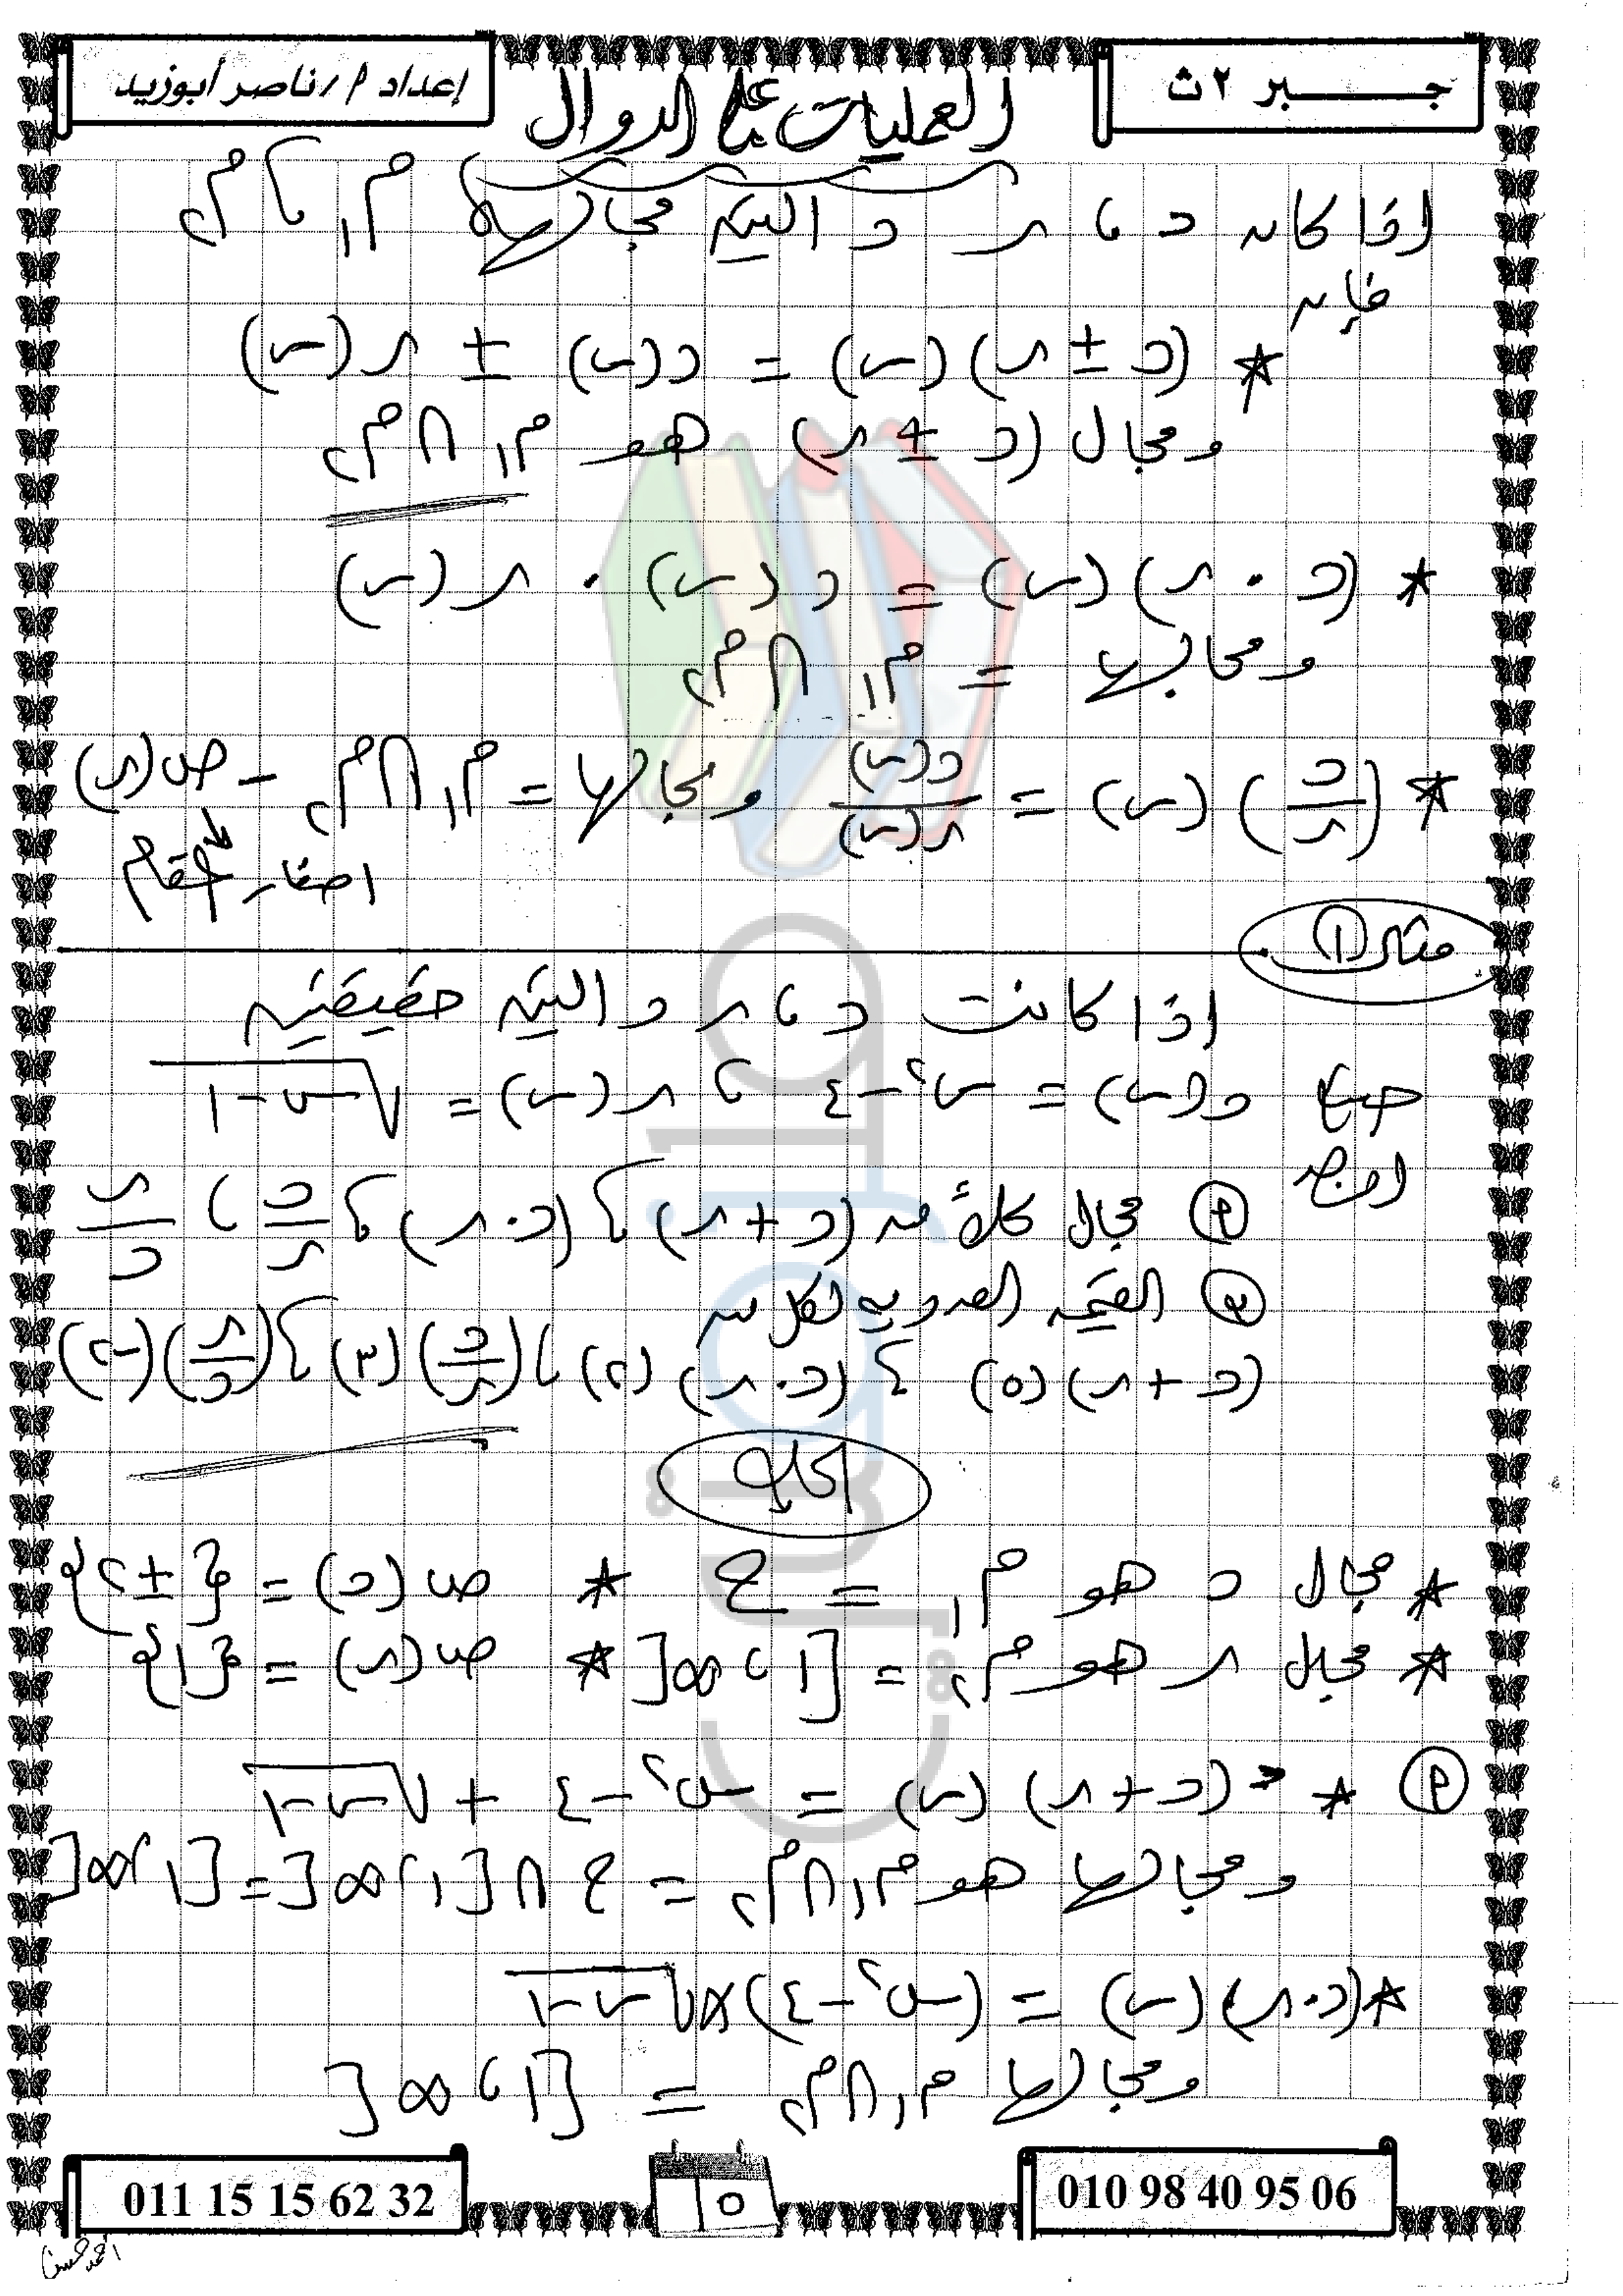 جـــبر ٢ ث
إعداد م/ ناصر أبوزيد
العمليات على الدوال
إذا كان د ، ر دالتين مجالهما م₁ ، م₂
فإن
* (د ± ر)(س) = د(س) ± ر(س)
ومجال (د ± ر) هو م₁ ∩ م₂
* (د . ر)(س) = د(س) . ر(س)
ومجالها = م₁ ∩ م₂
* (د/ر)(س) = د(س)/ر(س) ومجالها = م₁ ∩ م₂ - ص(ر)
اصفار المقام
مثال ١
إذا كانت د ، ر دالتين حقيقتين
حيث د(س) = س² - ٤ ، ر(س) = √(س - ١)
اوجد
أ مجال كلاً من (د + ر) ، (د . ر) ، د/ر ، ر/د
ب القيمه العدديه لكل من
(د + ر)(٥) ، (د . ر)(٢) ، (د/ر)(٣) ، (ر/د)(-٢)
الحل
* مجال د هو م₁ = ح * ص(د) = {± ٢}
* مجال ر هو م₂ = [١ ، ∞[ * ص(ر) = {١}
أ * (د + ر)(س) = س² - ٤ + √(س - ١)
ومجالها هو م₁ ∩ م₂ = ح ∩ [١ ، ∞[ = [١ ، ∞[
* (د . ر)(س) = (س² - ٤) × √(س - ١)
ومجالها م₁ ∩ م₂ = [١ ، ∞[
010 98 40 95 06
٥
011 15 15 62 32